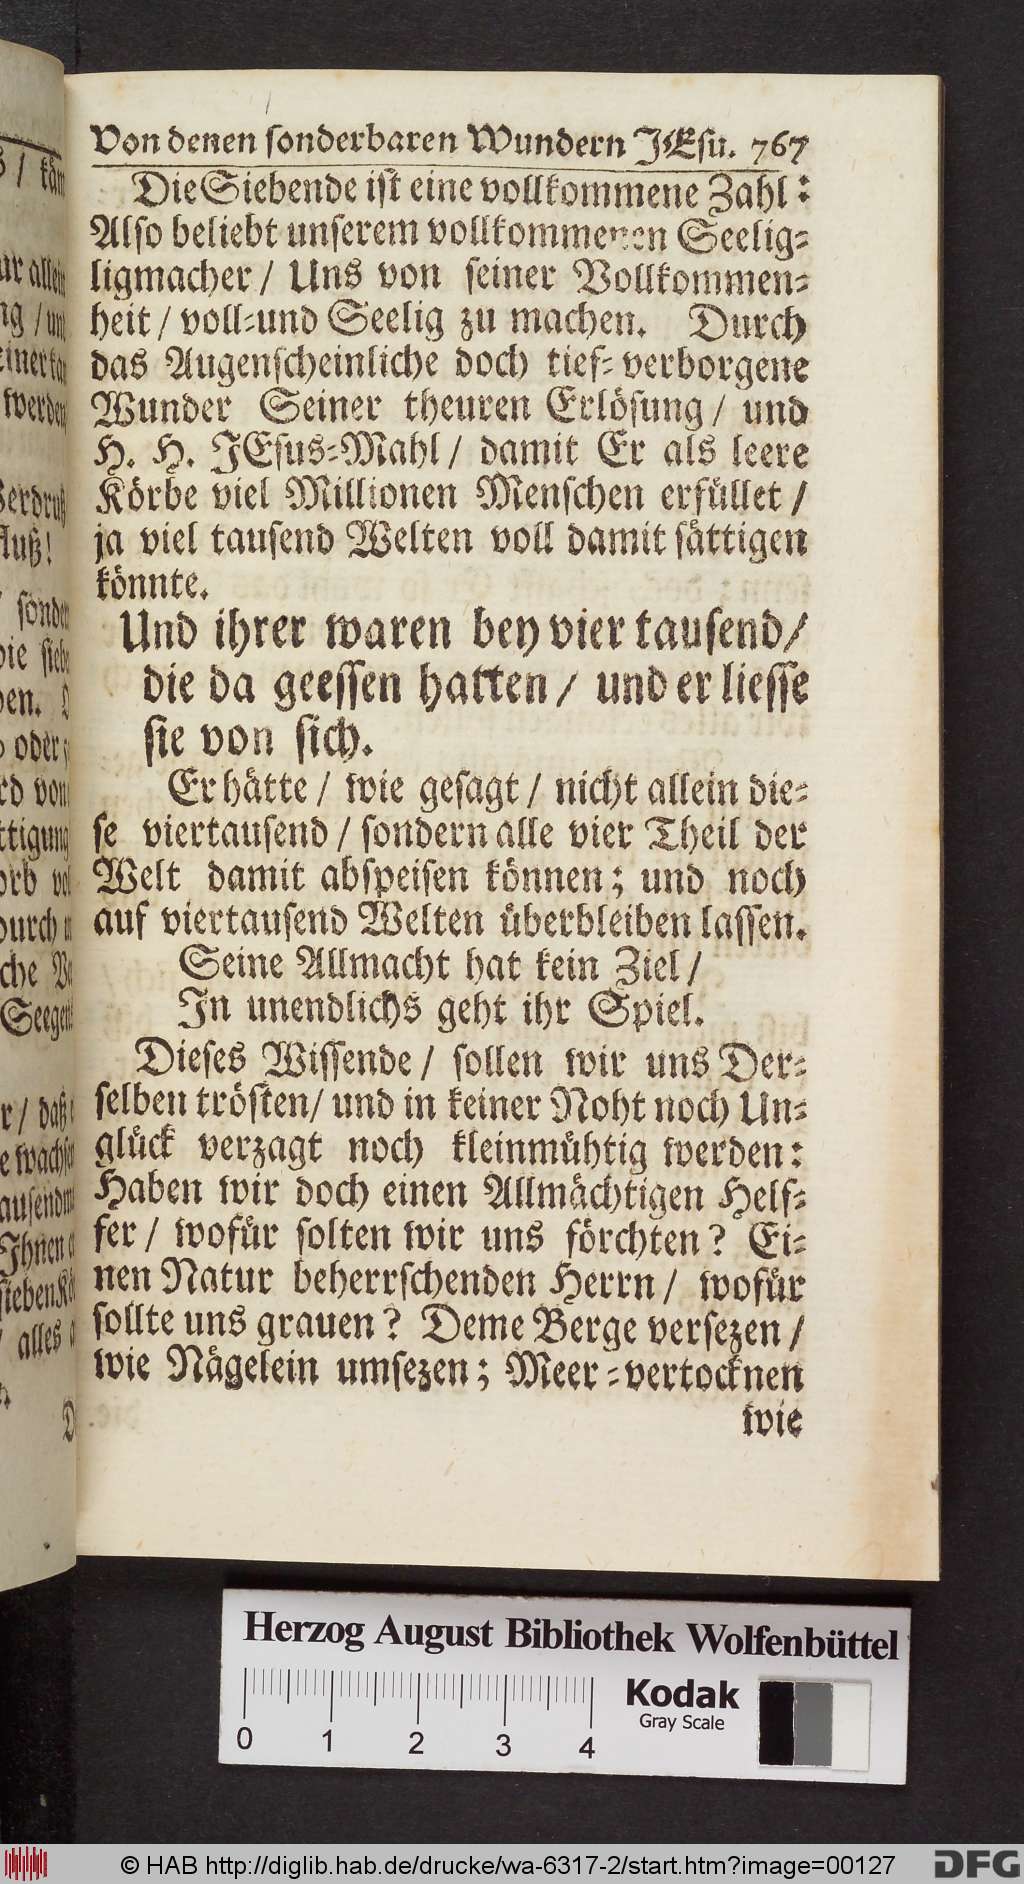 Von denen sonderbaren Wundern JEsu. 767
Die Siebende ist eine vollkommene Zahl:
Also beliebt unserem vollkommenen Seelig-
ligmacher / Uns von seiner Vollkommen-
heit / voll-und Seelig zu machen. Durch
das Augenscheinliche doch tief-verborgene
Wunder Seiner theuren Erlösung / und
H. H. JEsus-Mahl / damit Er als leere
Körbe viel Millionen Menschen erfüllet /
ja viel tausend Welten voll damit sättigen
könnte.
Und ihrer waren bey vier tausend /
die da geessen hatten / und er liesse
sie von sich.
Er hätte / wie gesagt / nicht allein die-
se viertausend / sondern alle vier Theil der
Welt damit abspeisen können; und noch
auf viertausend Welten überbleiben lassen.
Seine Allmacht hat kein Ziel /
In unendlichs geht ihr Spiel.
Dieses Wissende / sollen wir uns Der-
selben trösten / und in keiner Noht noch Un-
glück verzagt noch kleinmühtig werden:
Haben wir doch einen Allmächtigen Helf-
fer / wofür solten wir uns förchten? Ei-
nen Natur beherrschenden Herrn / wofür
sollte uns grauen? Deme Berge versezen /
wie Nägelein umsezen; Meer-vertocknen
wie
Herzog August Bibliothek Wolfenbüttel
Kodak
Gray Scale
0 1 2 3 4
© HAB http://diglib.hab.de/drucke/wa-6317-2/start.htm?image=00127
DFG